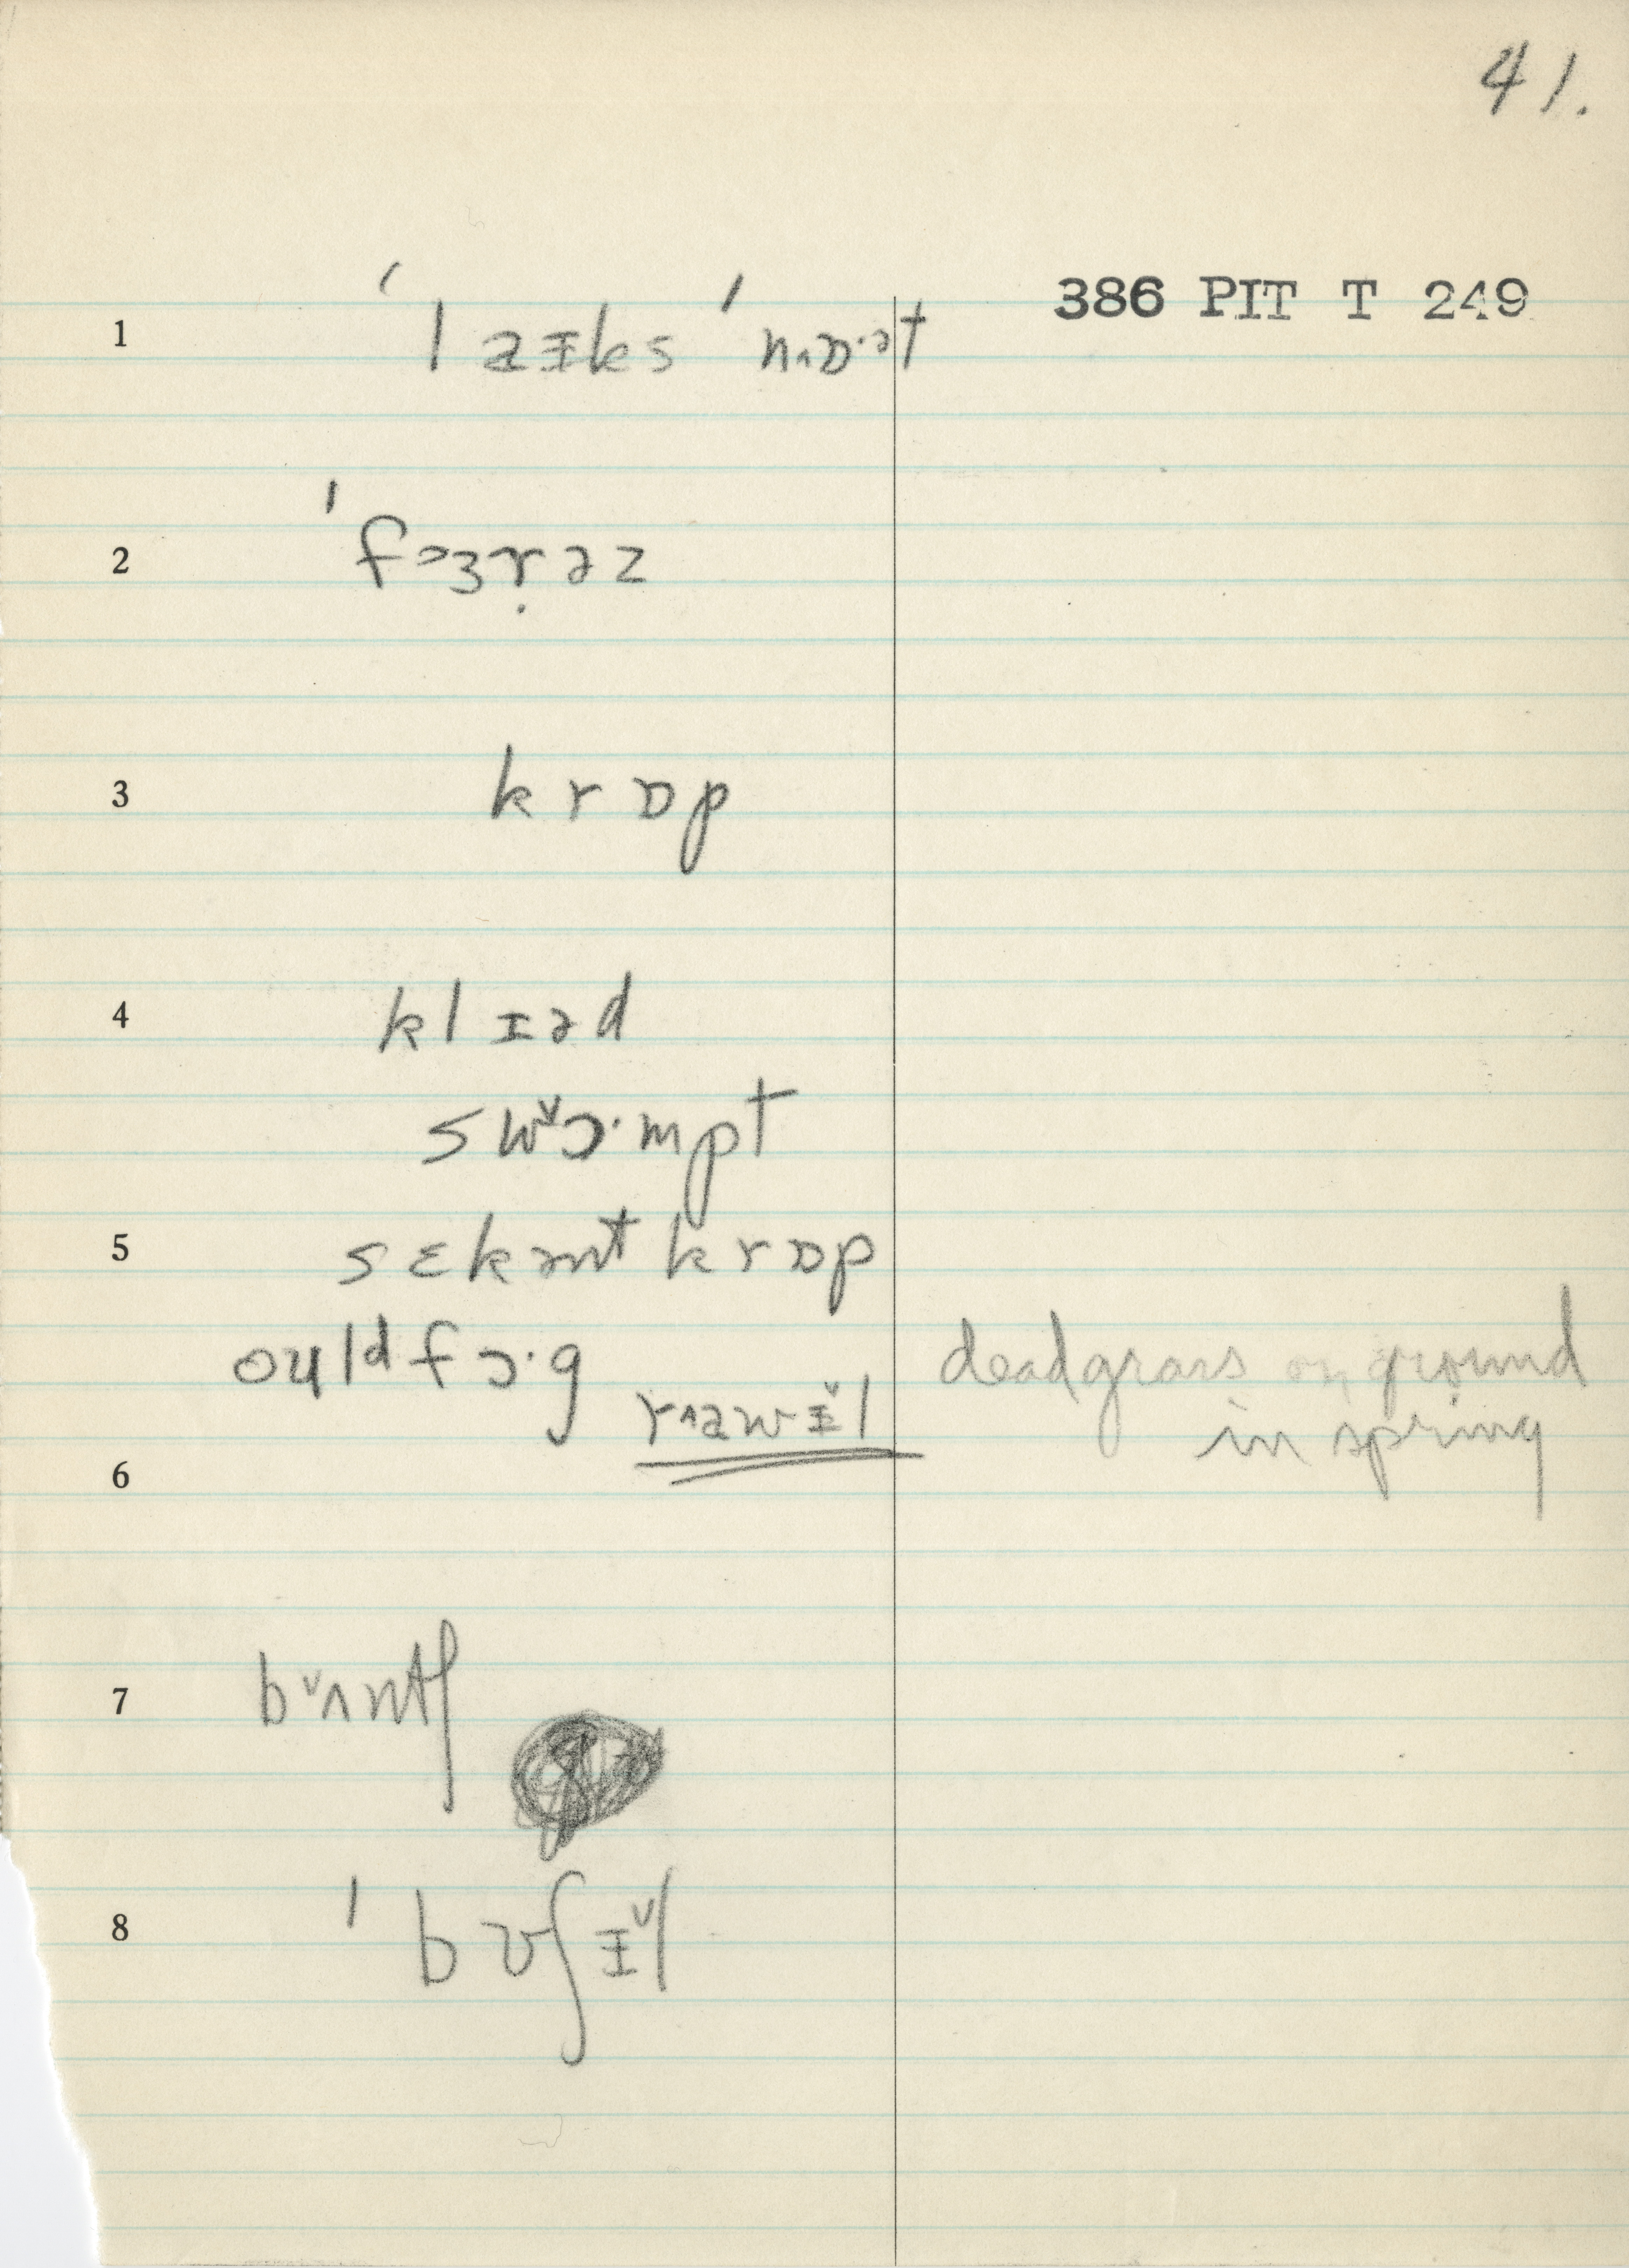 41.
386 PIT T 249
1 ˈl aɪks ˈn˄ɒ·ət
2 ˈf˃ɜṛəz
3 krɒp
4 klɪəd
swˇɔ·mpt
5 sɛkənt krɒp
ouldfɔ·g deadgrass on ground
r˄awɪˇl in spring
6
7 bˇʌntʃ
8 ˈbʊʃɪˇl